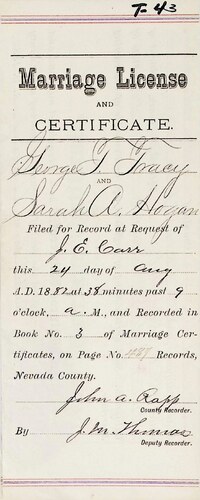 T-43
Marriage License
AND
CERTIFICATE.
George T. Tracy
AND
Sarah A. Hogan
Filed for Record at Request of
J. E. Carr
this 24 day of Aug
A.D. 1882 at 38 minutes past 9
o'clock, a. M., and Recorded in
Book No. 3 of Marriage Cer-
tificates, on Page No. Records,
Nevada County.
John A. Rapp
County Recorder.
By J. M. Thomas
Deputy Recorder.